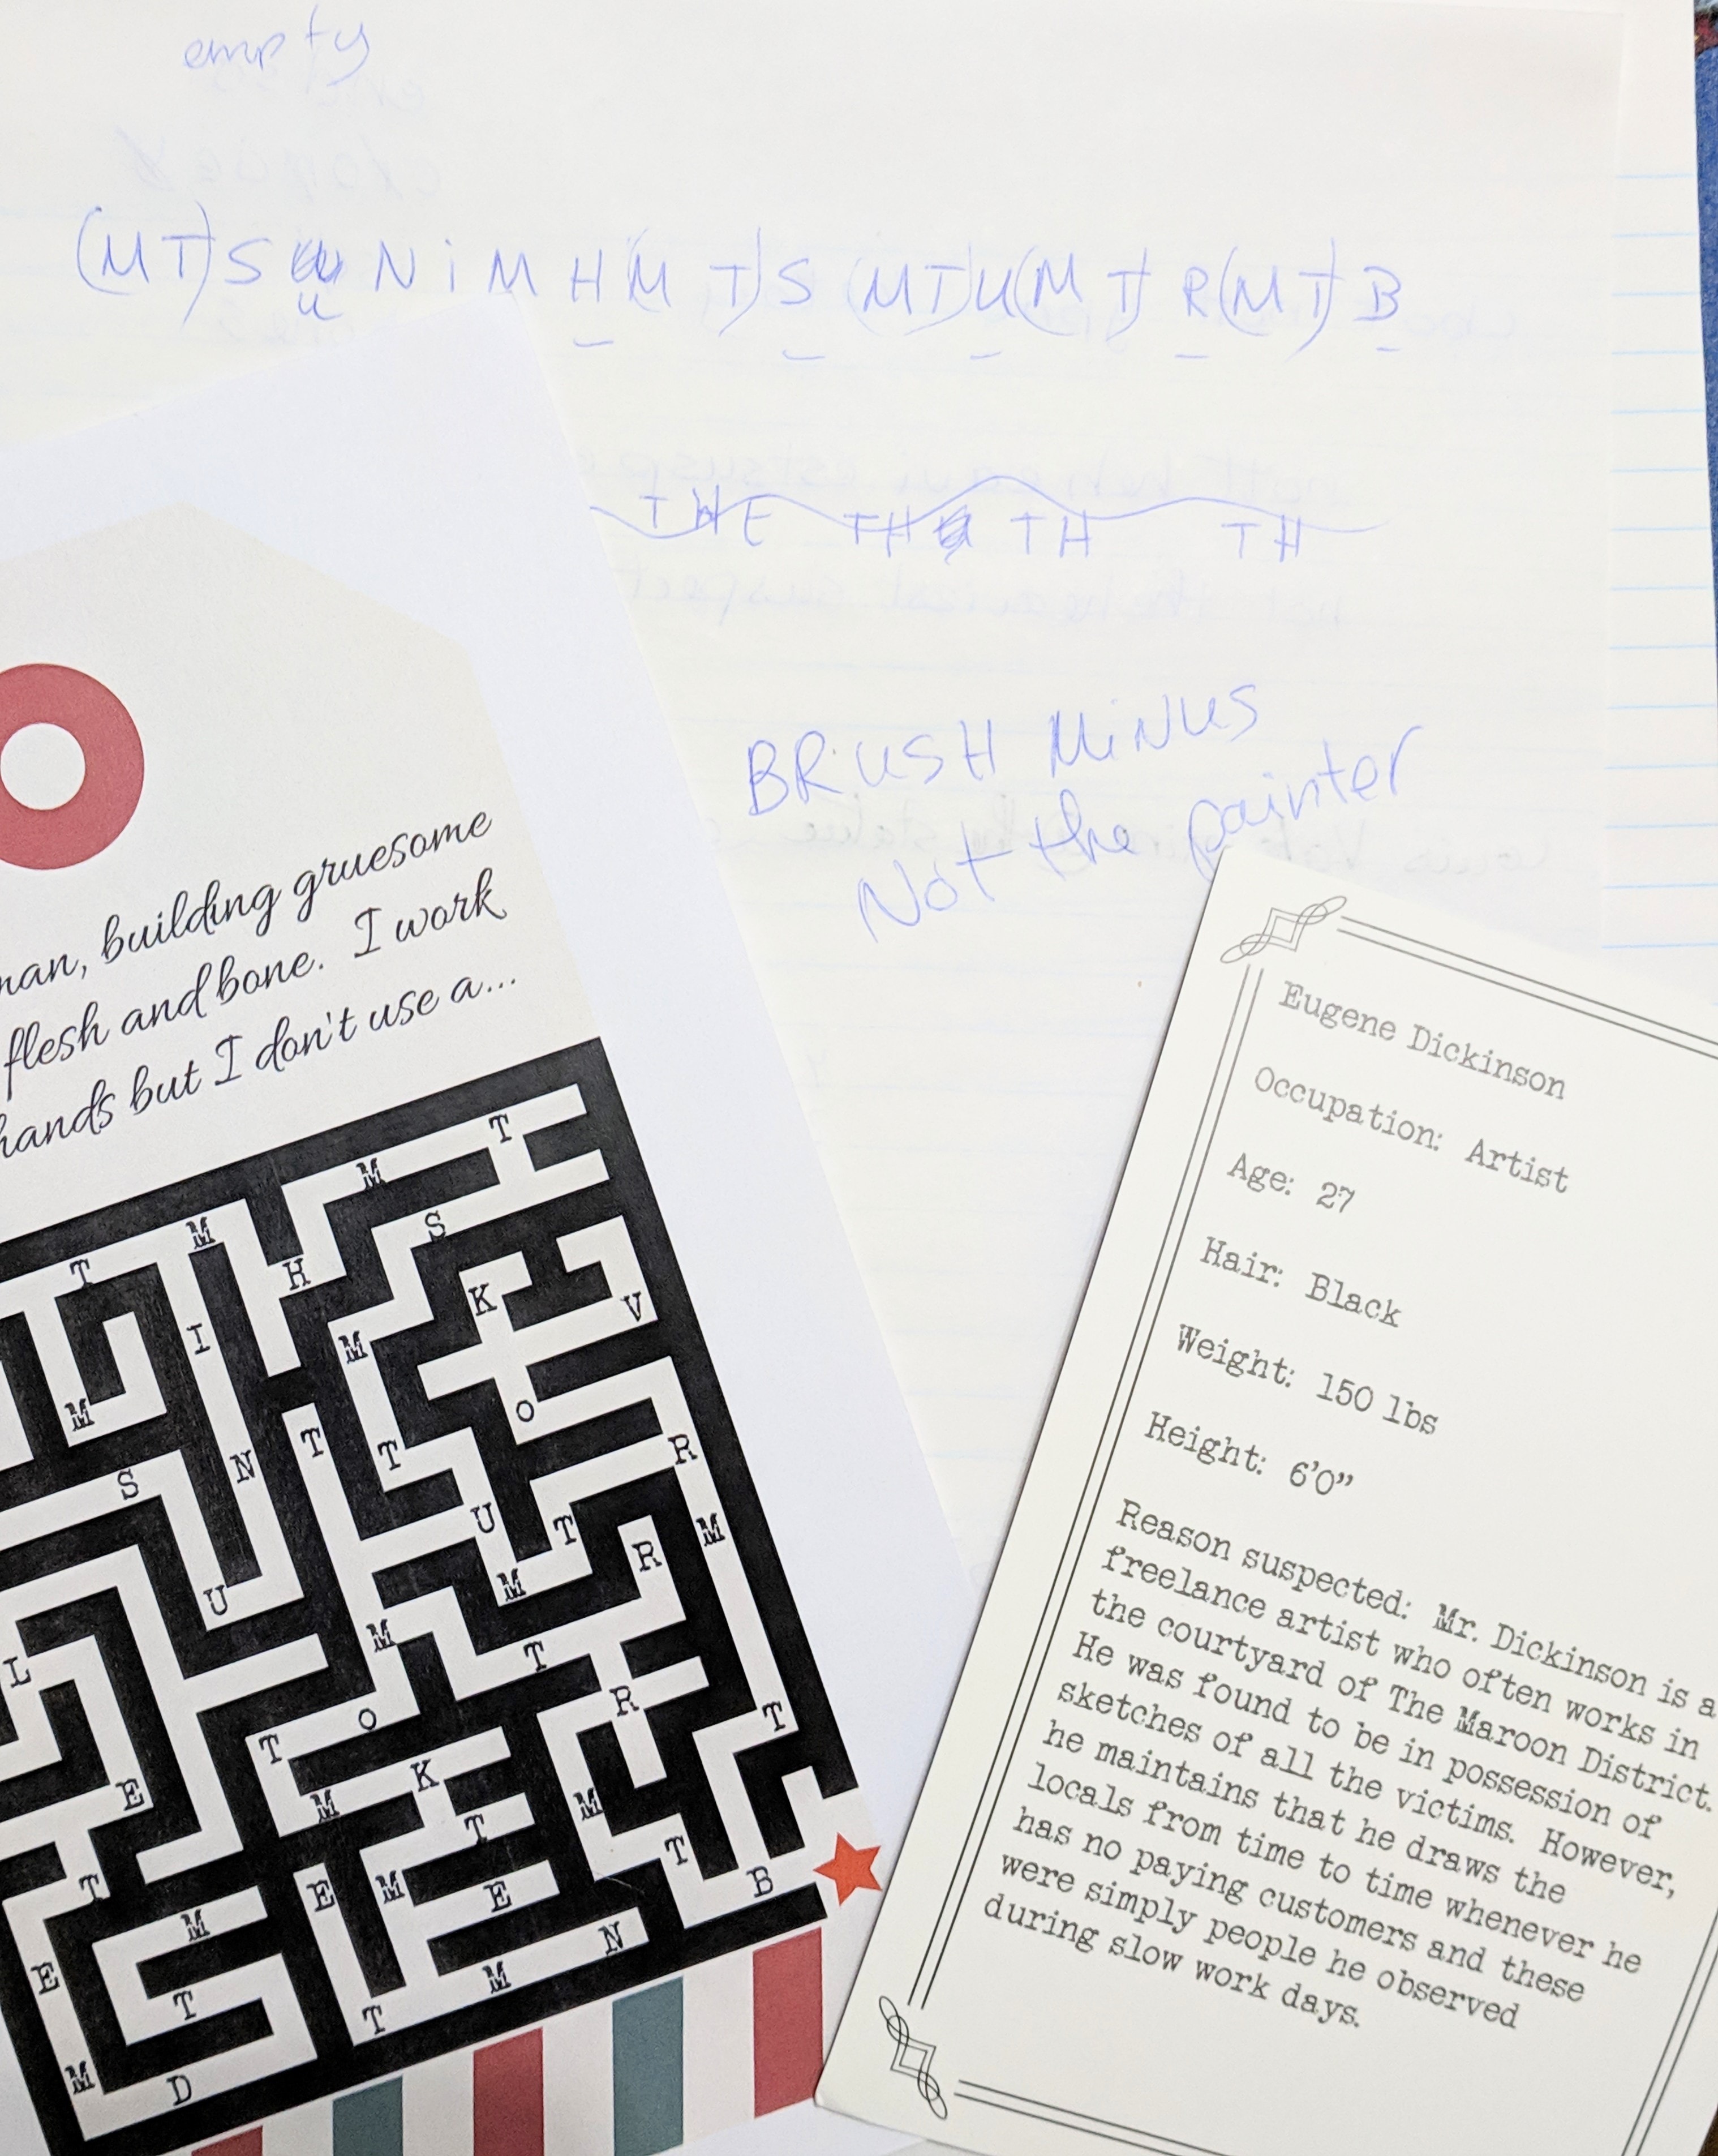 empty
(MT) S U N i M H (M T) S (MT) U (M T) R (MT) B
THE TH TH TH
BRUSH MiNUS
Not the painter
building gruesome
flesh and bone. I work
hands but I don't use a...
T
M
S
M
T
H
K
V
I
M
M
O
T
T
R
S
N
U
T
M
R
U
M
M
T
L
R
O
T
T
K
M
E
M
T
T
T
B
E
M
E
M
N
E
M
T
T
M
D
Eugene Dickinson
Occupation: Artist
Age: 27
Hair: Black
Weight: 150 lbs
Height: 6'0”
Reason suspected: Mr. Dickinson is a
freelance artist who often works in
the courtyard of The Maroon District.
He was found to be in possession of
sketches of all the victims. However,
he maintains that he draws the
locals from time to time whenever he
has no paying customers and these
were simply people he observed
during slow work days.